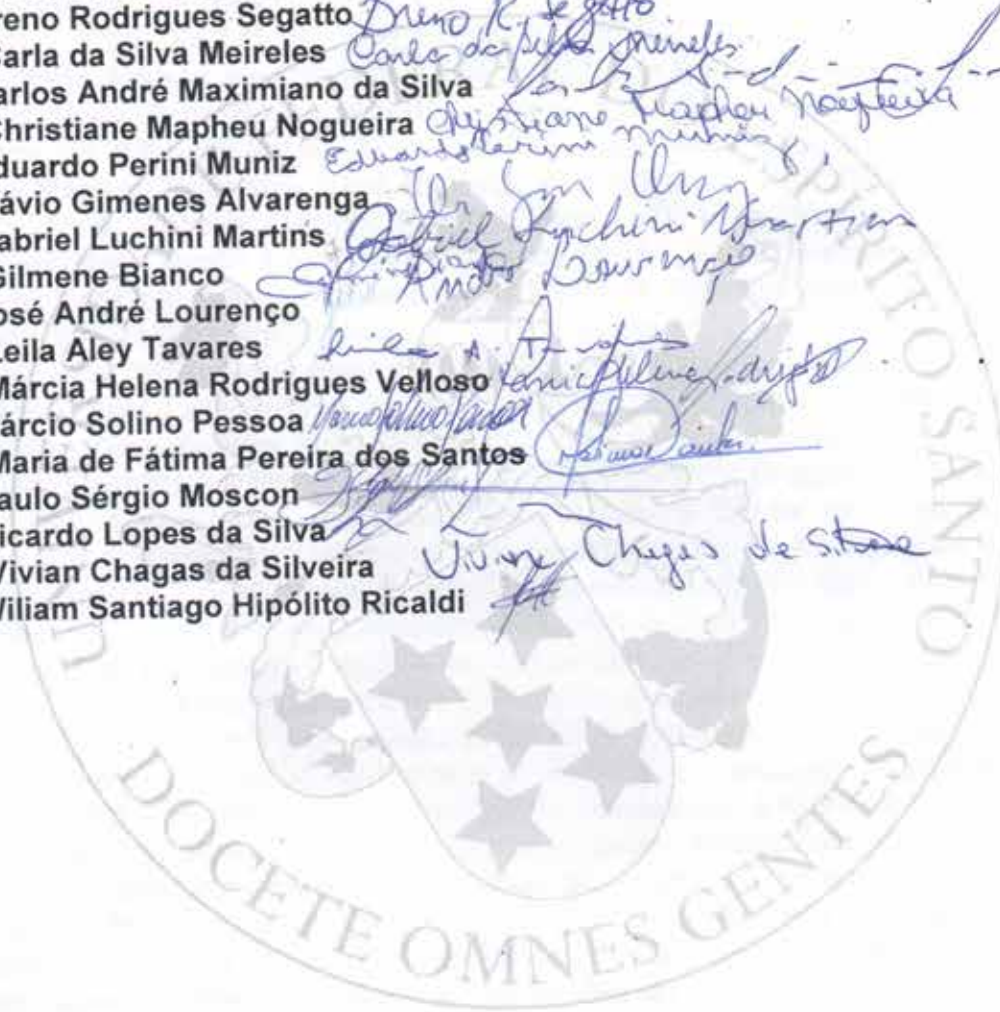 reno Rodrigues Segatto Breno R. Segatto
Carla da Silva Meireles Carla da Silva Meireles
arlos André Maximiano da Silva
Christiane Mapheu Nogueira Christiane Mapheu Nogueira
duardo Perini Muniz Eduardo Perini Muniz
ávio Gimenes Alvarenga
abriel Luchini Martins Gabriel Luchini Martins
Gilmene Bianco
osé André Lourenço André Lourenço
eila Aley Tavares Leila A. Tavares
Márcia Helena Rodrigues Velloso
árcio Solino Pessoa
Maria de Fátima Pereira dos Santos
aulo Sérgio Moscon
icardo Lopes da Silva
Vivian Chagas da Silveira Viviane Chagas da
Viliam Santiago Hipólito Ricaldi
ESPÍRITO SANTO
DOCETE OMNES GENTES